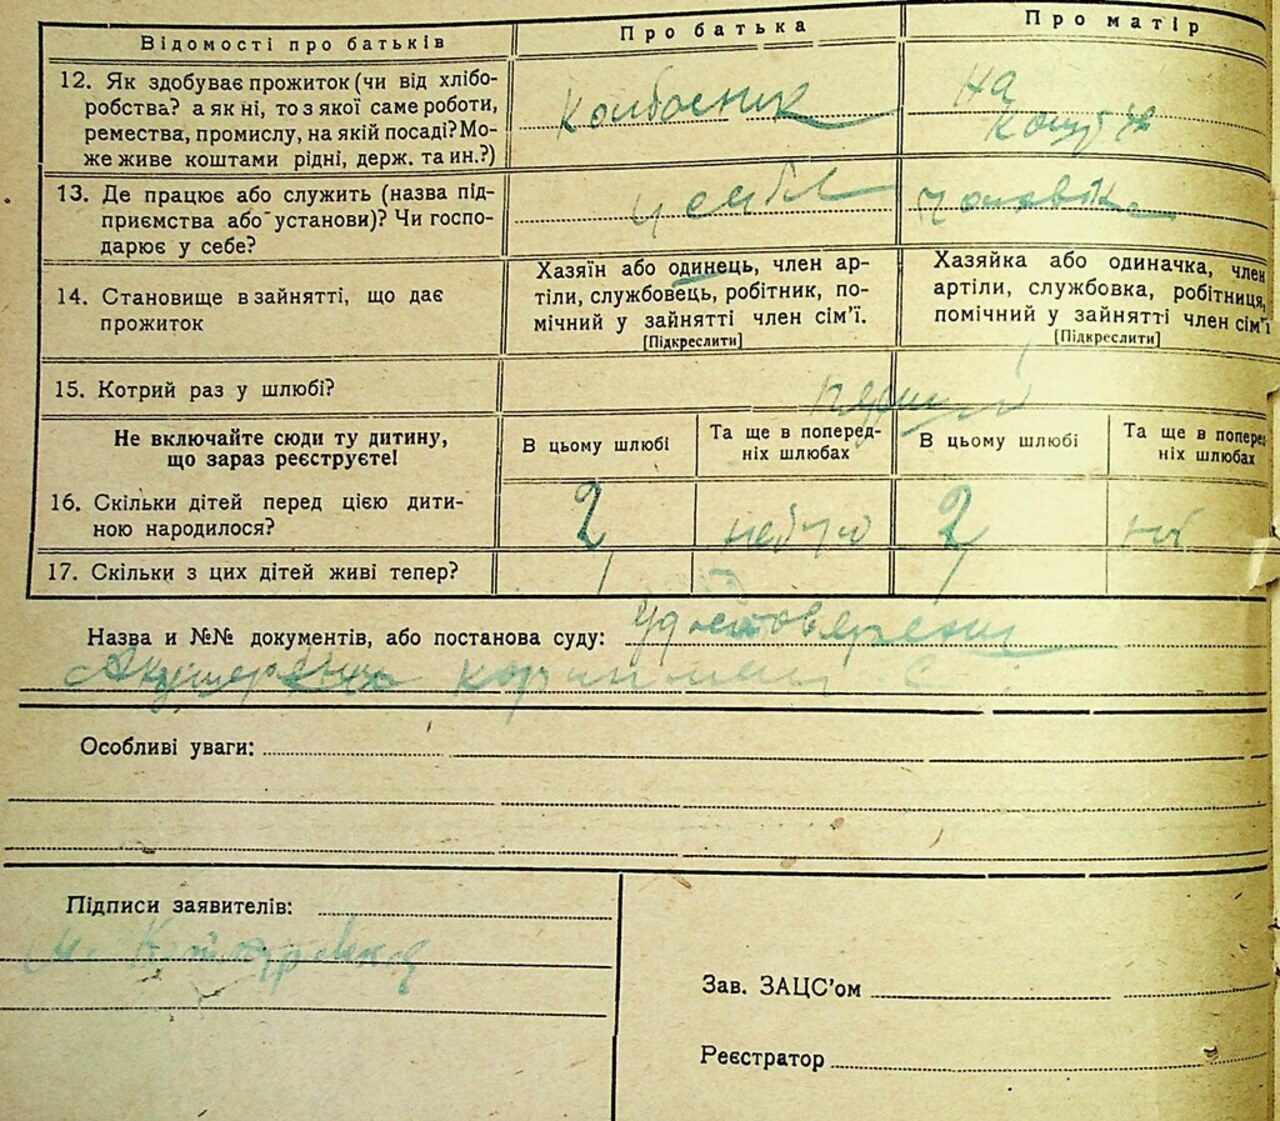 Відомості про батьків
Про батька
Про матір
12. Як здобуває прожиток (чи від хлібо-
робства? а як ні, то з якої саме роботи,
ремества, промислу, на якій посаді? Мо-
же живе коштами рідні, держ. та ин.?)
Колбасник
на
кошті
13. Де працює або служить (назва під-
приємства або установи)? Чи госпо-
дарює у себе?
у себе
чоловіка
14. Становище в зайнятті, що дає
прожиток
Хазяїн або одинець, член ар-
тіли, службовець, робітник, по-
мічний у зайнятті член сім'ї.
[Підкреслити]
Хазяйка або одиначка, член
артіли, службовка, робітниця,
помічний у зайнятті член сім'ї
[Підкреслити]
15. Котрий раз у шлюбі?
первий
Не включайте сюди ту дитину,
що зараз реєструєте!
В цьому шлюбі
Та ще в поперед-
ніх шлюбах
В цьому шлюбі
Та ще в поперед-
ніх шлюбах
16. Скільки дітей перед цією дити-
ною народилося?
2
не було
2
не
17. Скільки з цих дітей живі тепер?
Назва и №№ документів, або постанова суду:
Удостоверения
Акушерки
Особливі уваги:
Підписи заявителів:
Зав. ЗАЦС'ом
Реєстратор